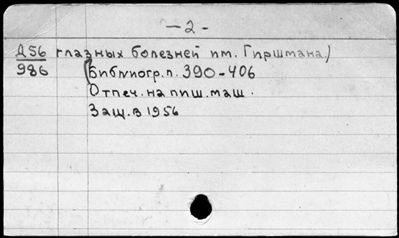 — 2 —
Д56 глазных болезней им. Гиршмана)
986 (Библиогр.п. 390-406
Отпеч. на пиш.маш.
Защ. в 1956